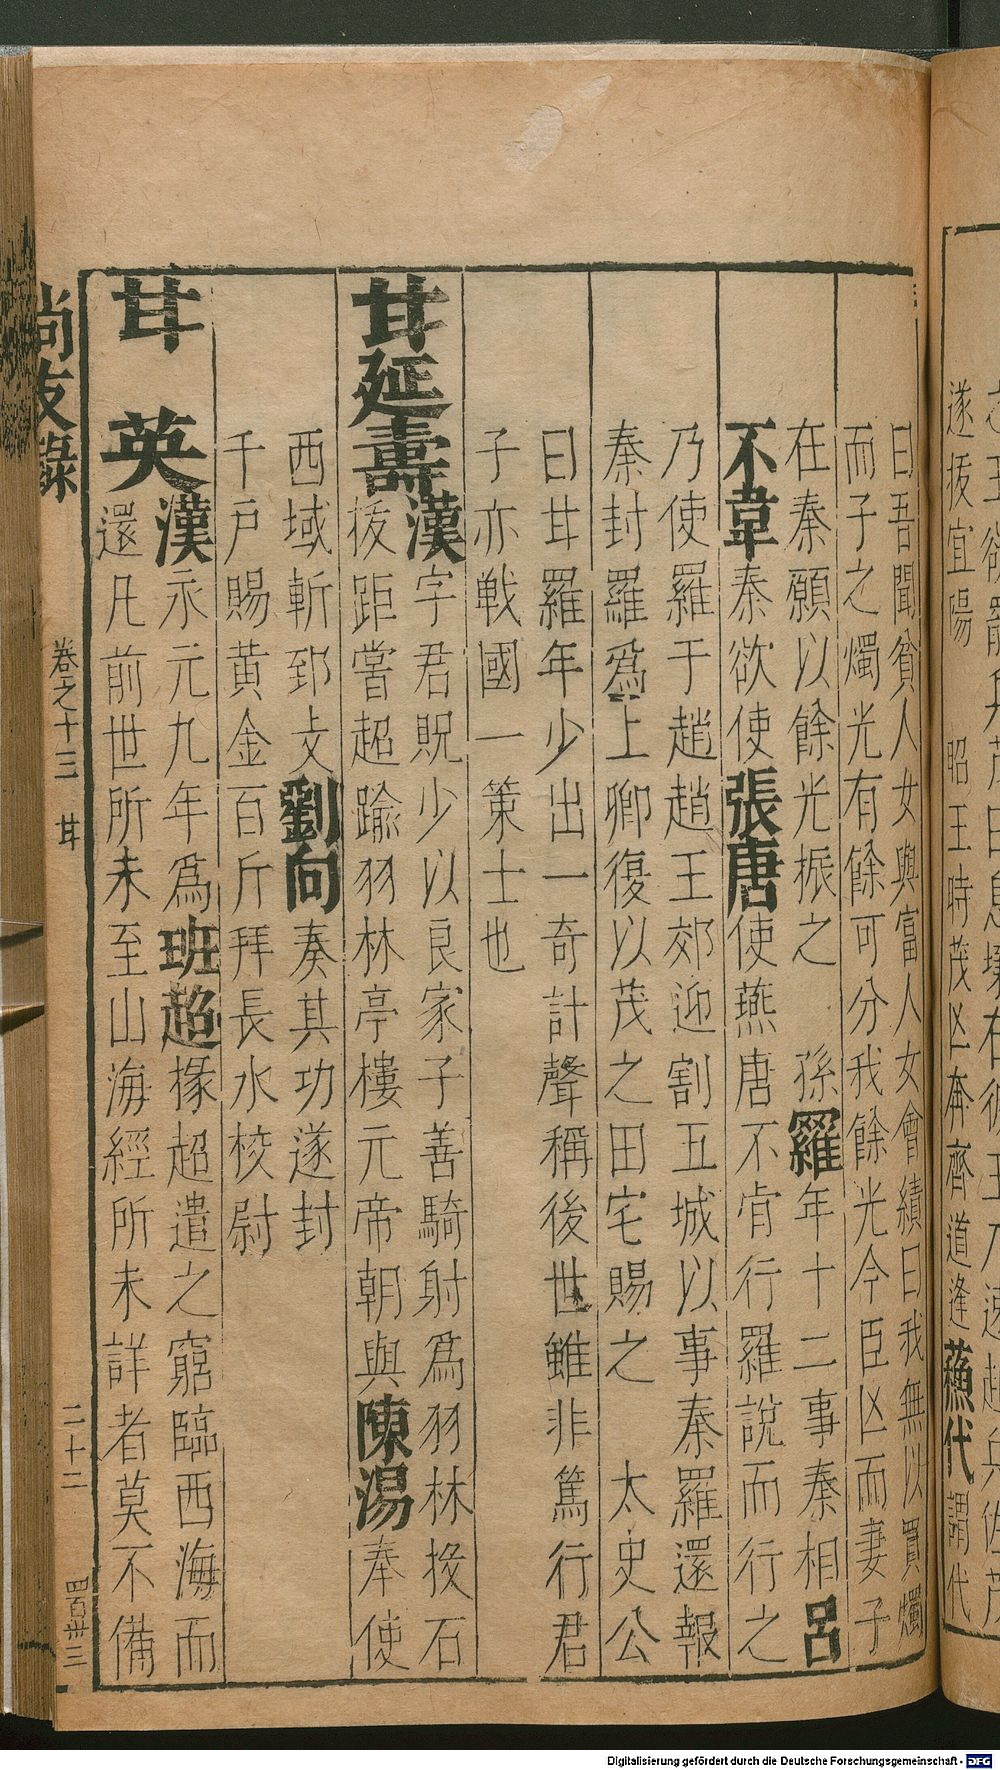 遂拔宜陽　昭王時茂凶奔齊道逢蘓代謂代
曰吾聞貧人女與富人女會績曰我無以買燭
而子之燭光有餘可分我餘光今臣凶而妻子
在秦願以餘光振之　孫羅年十二事秦相呂
不韋秦欲使張唐使燕唐不肯行羅說而行之
乃使羅于趙趙王郊迎割五城以事秦羅還報
秦封羅爲上卿復以茂之田宅賜之　太史公
曰甘羅年少出一奇計聲稱後世雖非篤行君
子亦戦國一策士也
甘延壽漢字君貺少以良家子善騎射爲羽林投石
拔距嘗超踰羽林亭樓元帝朝與陳湯奉使
西域斬郅支劉向奏其功遂封
千戸賜黄金百斤拜長水校尉
甘英漢永元九年爲班超掾超遣之窮臨西海而
還凡前世所未至山海經所未詳者莫不備
尚友錄　卷之十三　甘　二十二　四百卅三
Digitalisierung gefördert durch die Deutsche Forschungsgemeinschaft - DFG